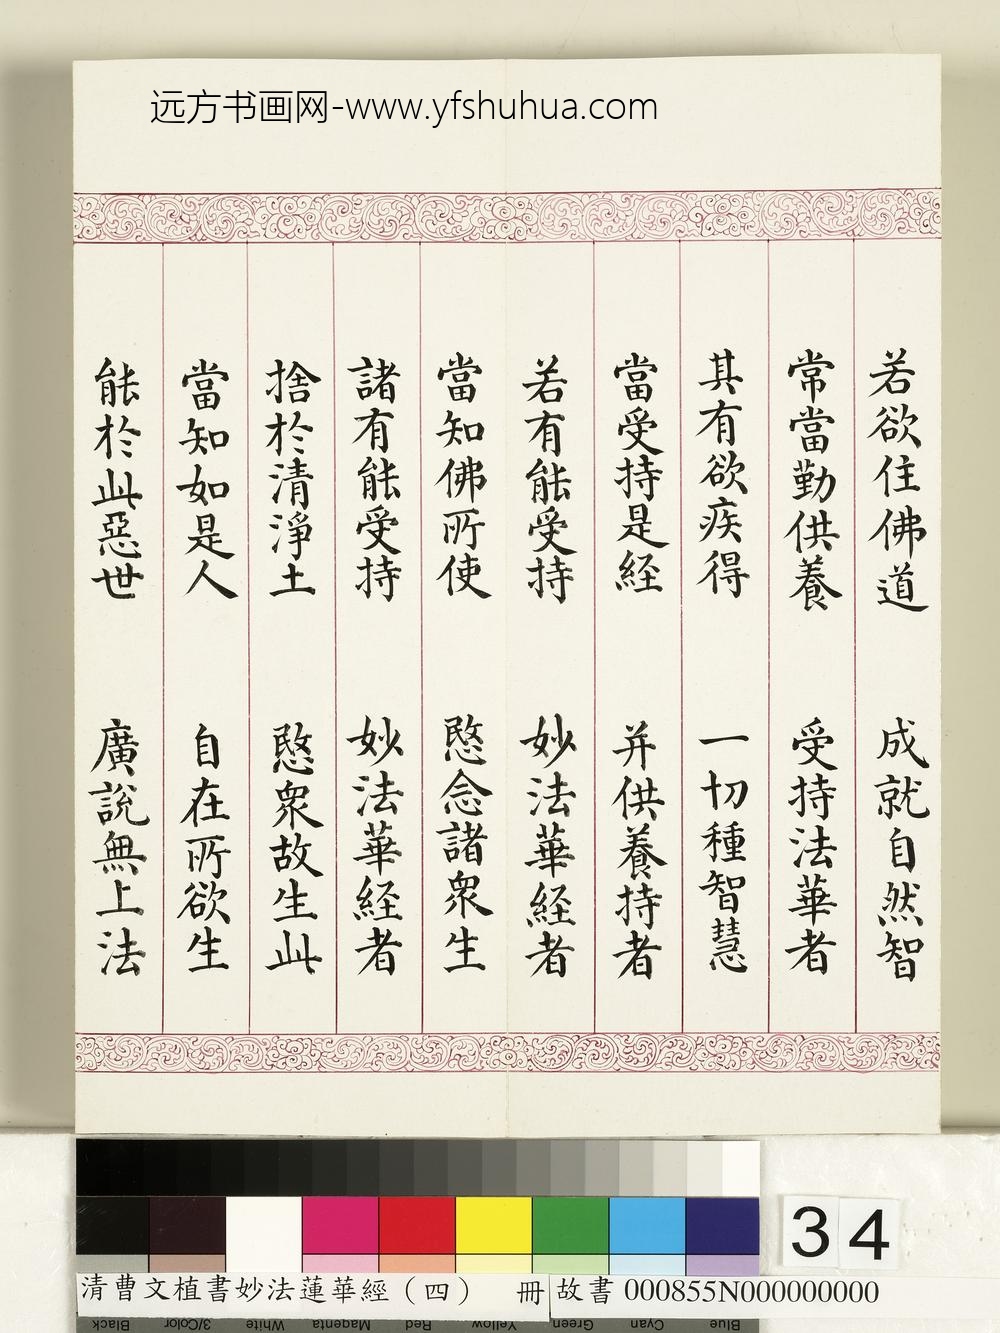 远方书画网-www.yfshuhua.com
若欲住佛道 成就自然智
常當勤供養 受持法華者
其有欲疾得 一切種智慧
當受持是経 并供養持者
若有能受持 妙法華経者
當知佛所使 愍念諸衆生
諸有能受持 妙法華経者
捨於清淨土 愍衆故生此
當知如是人 自在所欲生
能於此惡世 廣説無上法
34
清曹文植書妙法蓮華經（四） 冊
故書 000855N000000000
Black 3/Color White Magenta Red Yellow Green Cyan Blue